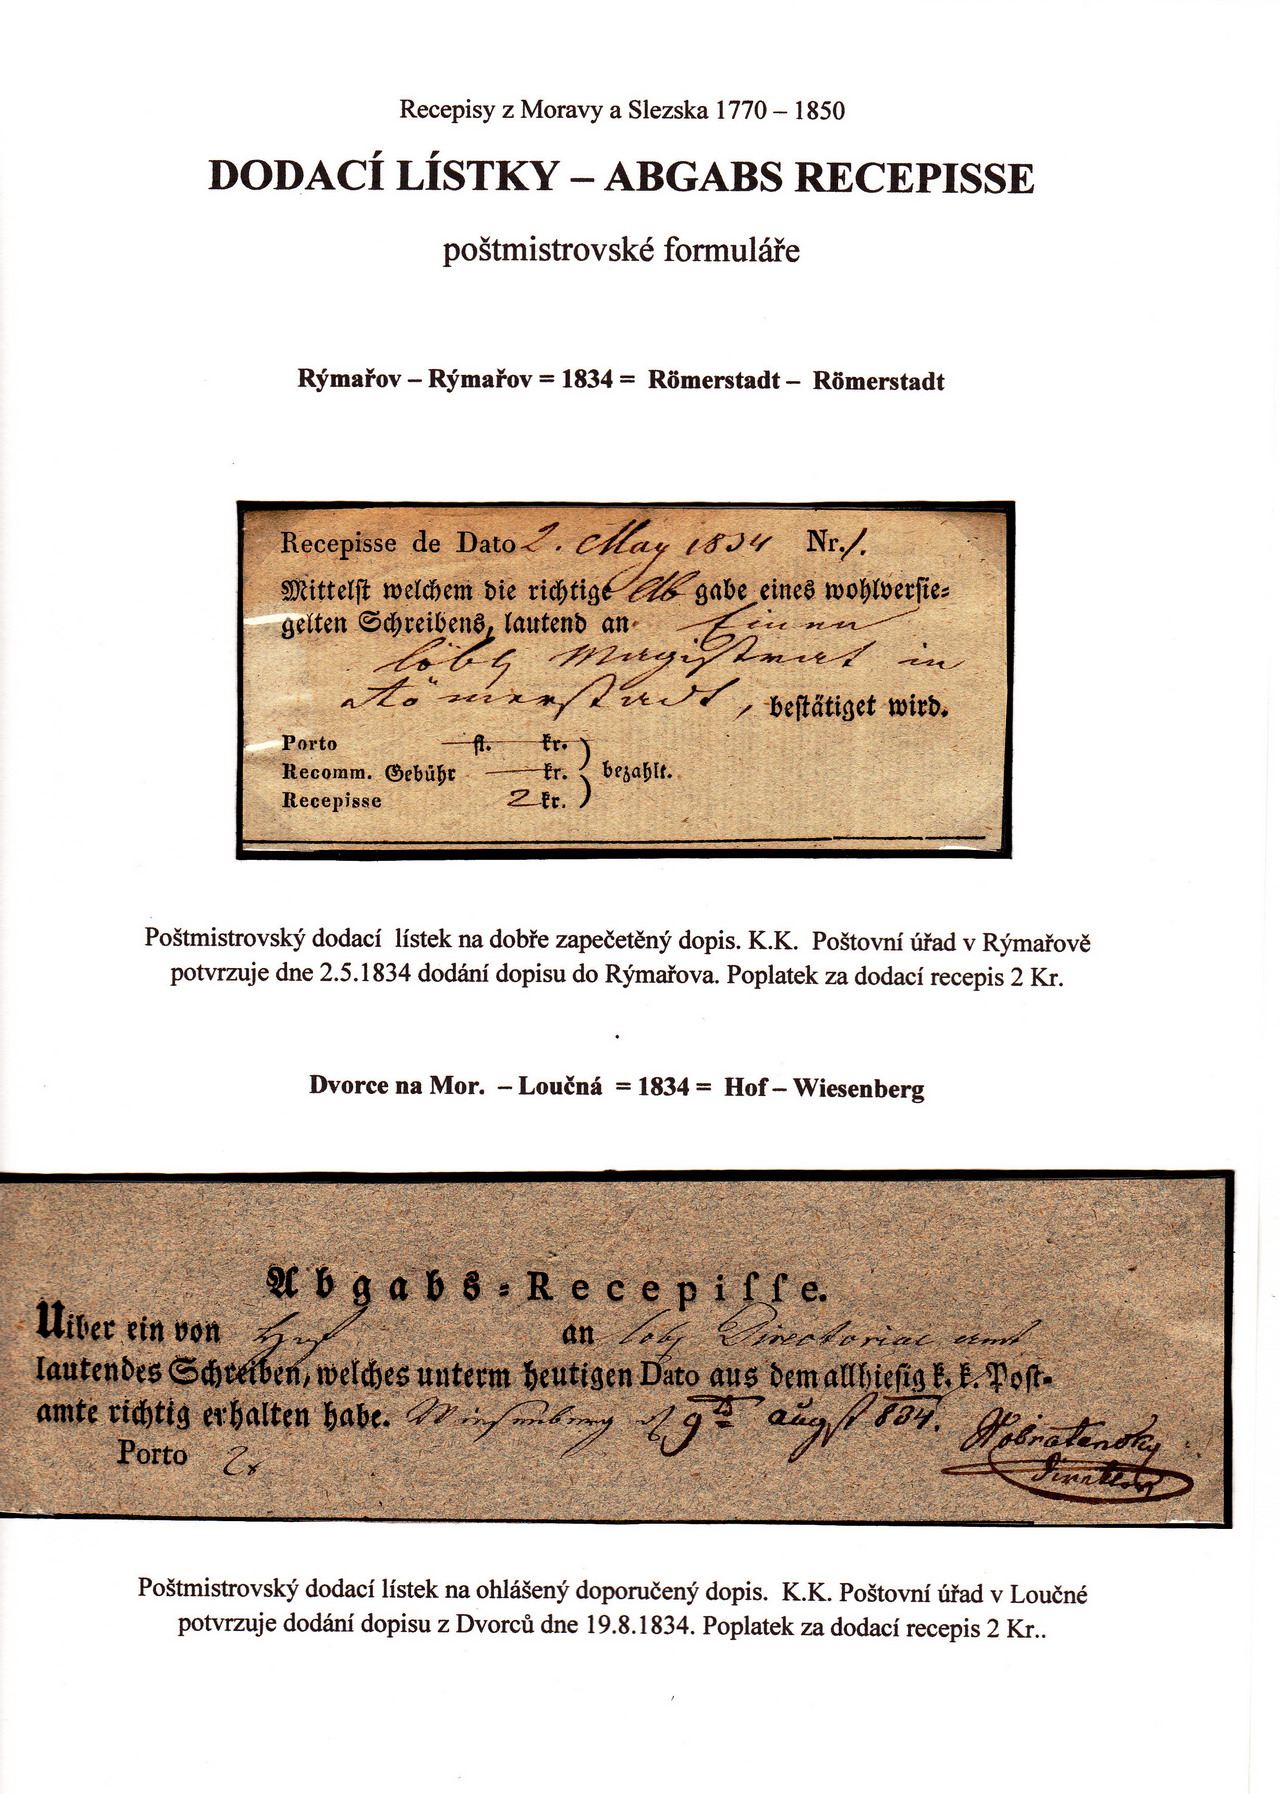 Recepisy z Moravy a Slezska 1770 – 1850
DODACÍ LÍSTKY – ABGABS RECEPISSE
poštmistrovské formuláře
Rýmařov – Rýmařov = 1834 = Römerstadt – Römerstadt
Recepisse de Dato 2. May 1834 Nr. 1.
Mittelſt welchem die richtige Ab gabe eines wohlverſie=
gelten Schreibens, lautend an Einen
löbl Magistrat in
Römerstadt, beſtätiget wird.
Porto — fl. — kr.
Recomm. Gebühr — kr. } bezahlt.
Recepisse 2 kr.
Poštmistrovský dodací lístek na dobře zapečetěný dopis. K.K. Poštovní úřad v Rýmařově
potvrzuje dne 2.5.1834 dodání dopisu do Rýmařova. Poplatek za dodací recepis 2 Kr.
Dvorce na Mor. – Loučná = 1834 = Hof – Wiesenberg
Abgabs=Recepiſſe.
Uiber ein von Hof an löbl Directorial amt
lautendes Schreiben, welches unterm heutigen Dato aus dem allhieſig k. k. Poſt=
amte richtig erhalten habe. Wiesenberg 9 augst 834.
Porto 2x
Poštmistrovský dodací lístek na ohlášený doporučený dopis. K.K. Poštovní úřad v Loučné
potvrzuje dodání dopisu z Dvorců dne 19.8.1834. Poplatek za dodací recepis 2 Kr..